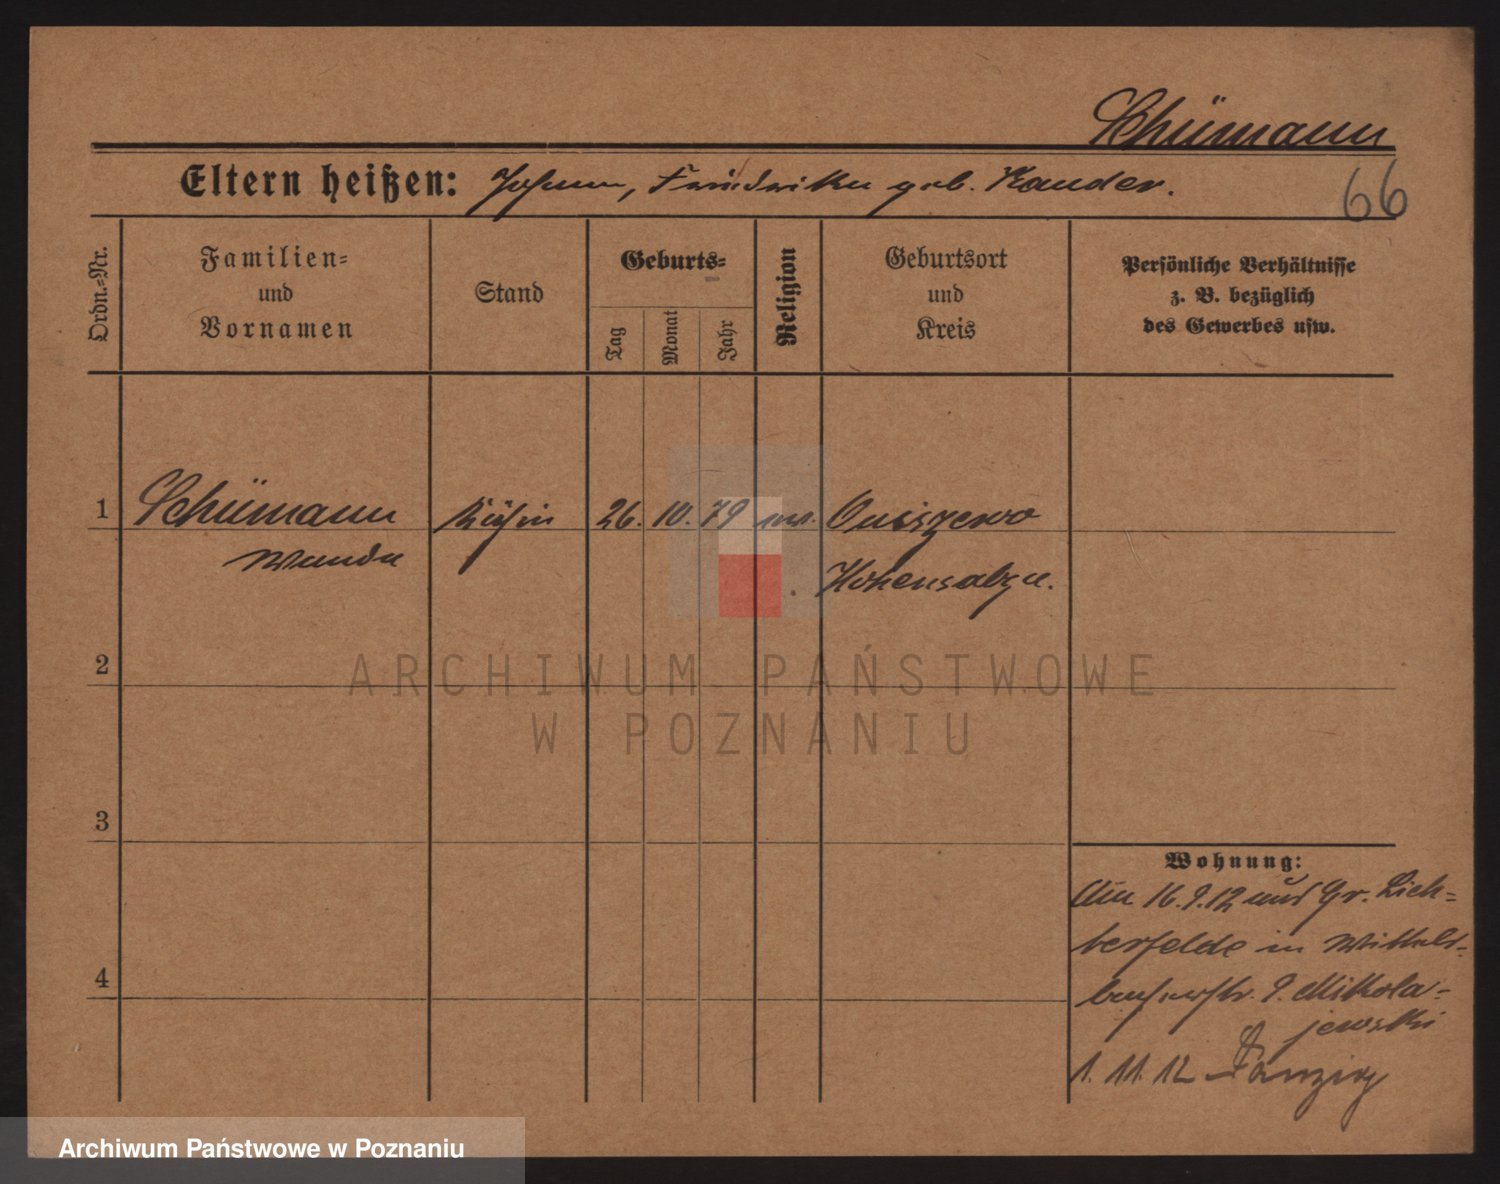 Schümann
Eltern heißen: Johann, Friederike geb. Kander.
66
Ordn.-Nr.
Familien-
und
Vornamen
Stand
Geburts-
Tag
Monat
Jahr
Religion
Geburtsort
und
Kreis
Persönliche Verhältnisse
z. B. bezüglich
des Gewerbes usw.
1
Schümann
Wanda
Köchin
26. 10. 79
ev.
Hohensalza.
2
ARCHIWUM PAŃSTWOWE
W POZNANIU
3
4
Wohnung:
16. 9. 12 Gr. Lich-
terfelde in Wittels-
bacherstr. 9. Mikola-
jewski
1. 11. 12 Danzig
Archiwum Państwowe w Poznaniu